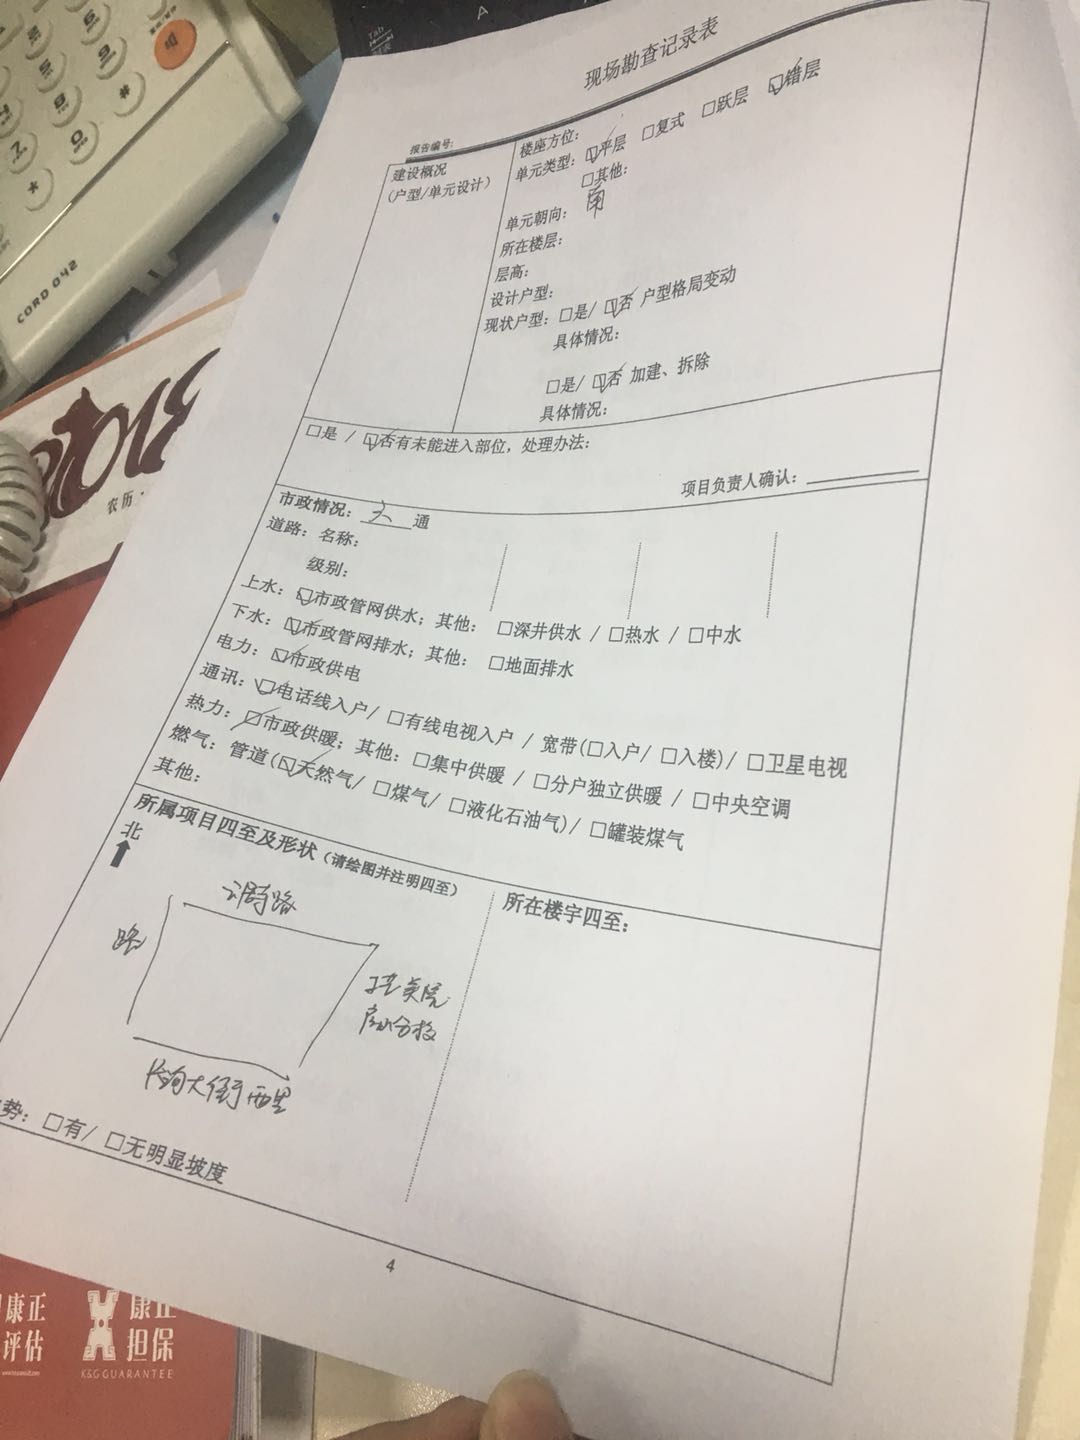 现场勘查记录表
报告编号:
建设概况
(户型/单元设计)
楼座方位:
单元类型: ☑平层 □复式 □跃层 ☑错层
□其他:
单元朝向: 南
所在楼层:
层高:
设计户型:
现状户型: □是/ ☑否 户型格局变动
具体情况:
□是/ ☑否 加建、拆除
具体情况:
□是 / ☑否有未能进入部位，处理办法:
项目负责人确认:
市政情况: 六 通
道路: 名称:
级别:
上水: ☑市政管网供水; 其他: □深井供水 / □热水 / □中水
下水: ☑市政管网排水; 其他: □地面排水
电力: ☑市政供电
通讯: ☑电话线入户/ □有线电视入户 / 宽带(□入户/ □入楼)/ □卫星电视
热力: ☑市政供暖; 其他: □集中供暖 / □分户独立供暖 / □中央空调
燃气: 管道(☑天然气/ □煤气/ □液化石油气)/ □罐装煤气
其他:
所属项目四至及形状(请绘图并注明四至)
所在楼宇四至:
北
路
路
大街西里
分校
势: □有/ □无明显坡度
4
CORD 042
农历
康正
评估
康正
担保
K&G GUARANTEE